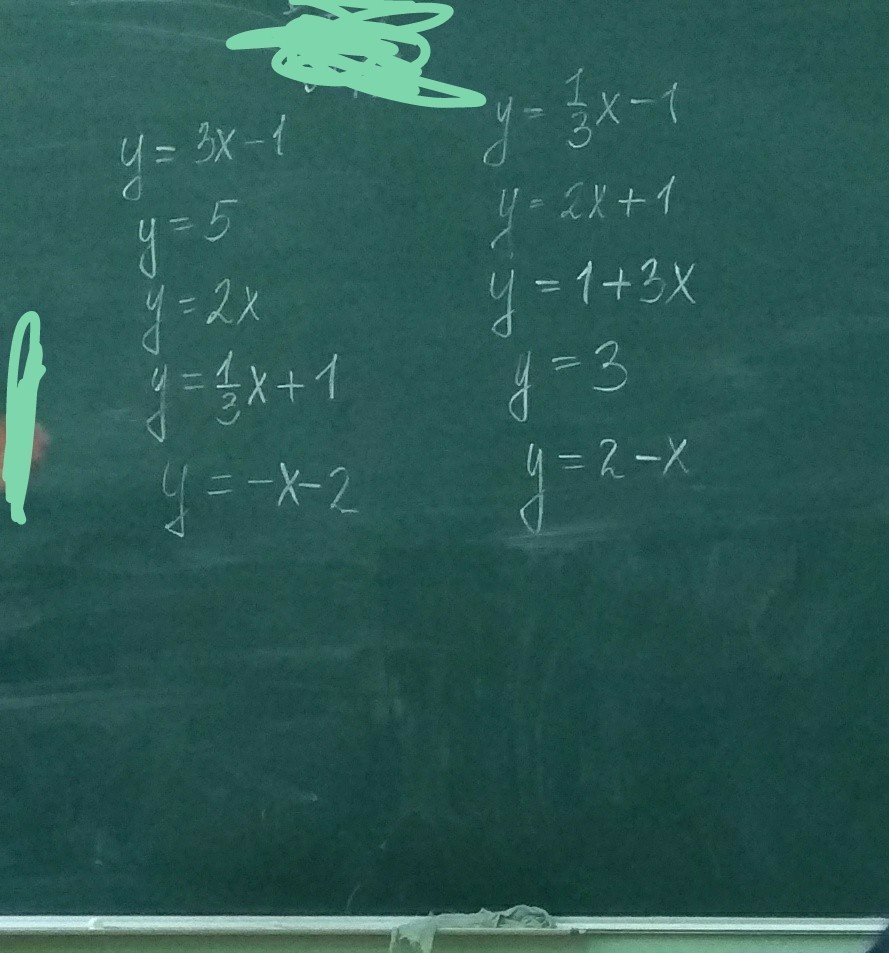 y = 3x - 1
y = 5
y = 2x
y = 1/3 x + 1
y = -x - 2
y = 1/3 x - 1
y = 2x + 1
y = 1 + 3x
y = 3
y = 2 - x